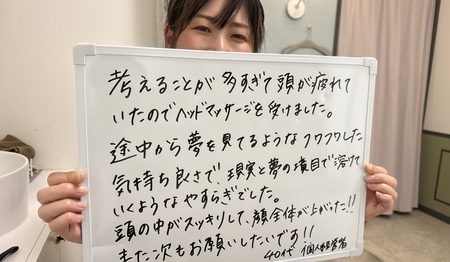 考えることが多すぎて頭が疲れて
いたのでヘッドマッサージを受けました。
途中から夢を見てるようなフワフワした
気持ち良さで、現実と夢の境目で溶けて
いくようなやすらぎでした。
頭の中がスッキリして、顔全体が上がった!!
また次もお願いしたいです!!
40代 個人経営者